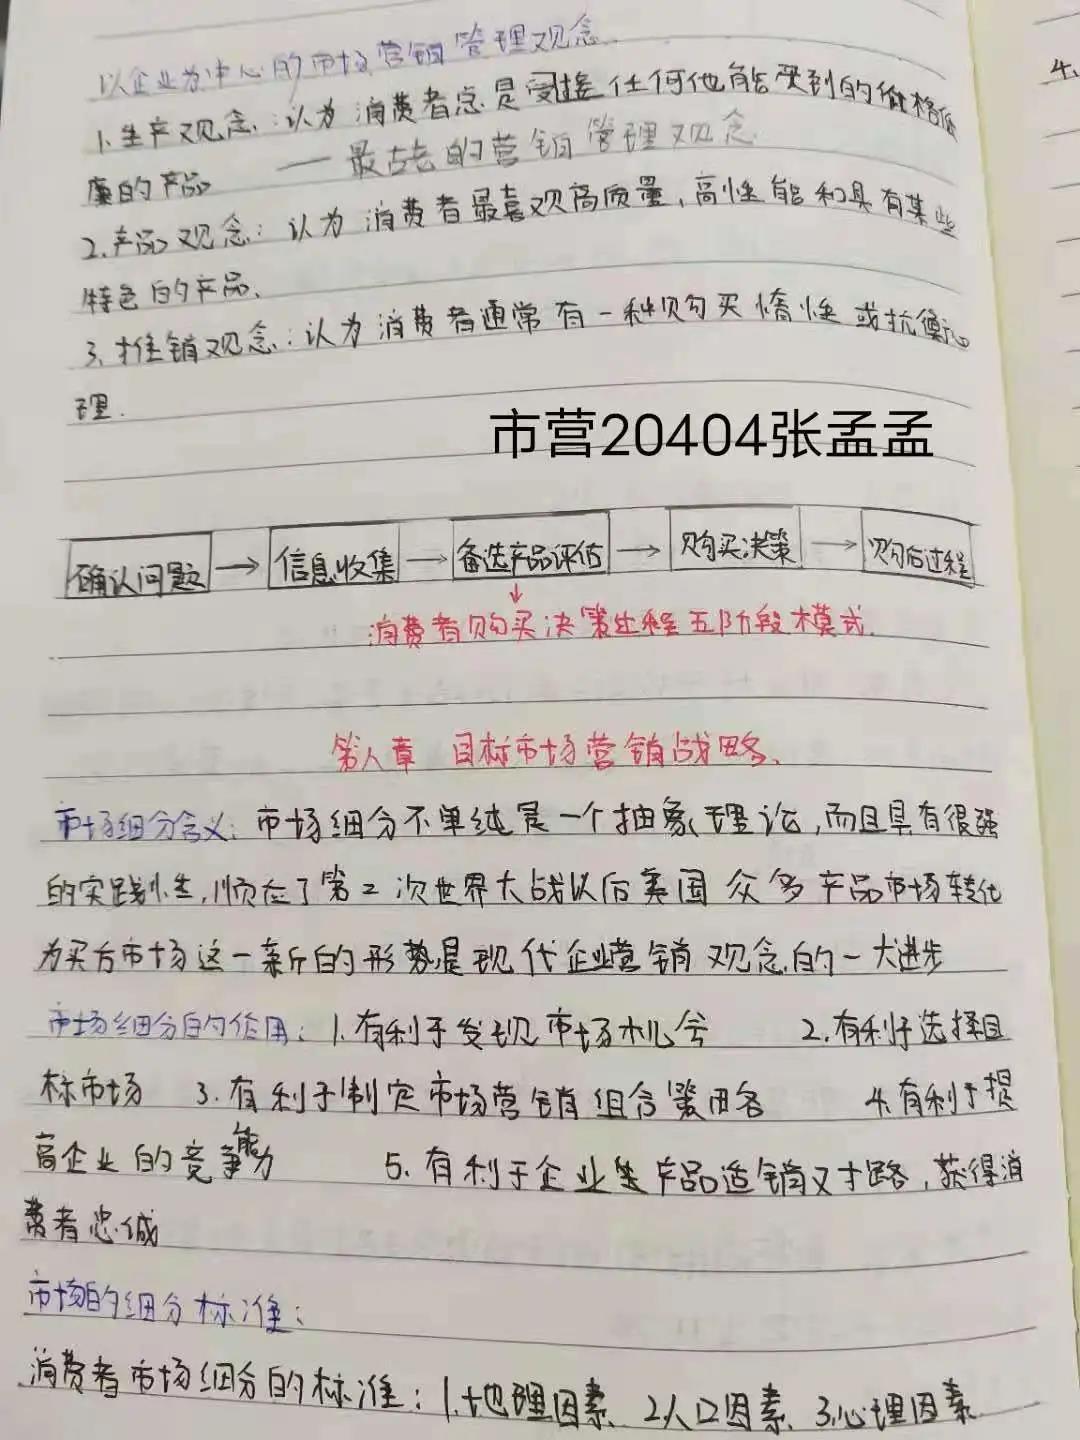 以企业为中心的市场营销管理观念.
1.生产观念:认为消费者总是受接任何他能受到的价格低
廉的产品 — 最古老的营销管理观念
2.产品观念:认为消费者最喜观高质量,高性能和具有某些
特色的产品、
3.推销观念:认为消费者通常有一种购买惰性或抗衡心
理.
市营20404张孟孟
确认问题 → 信息收集 → 备选产品评估 → 购买决策 → 购后过程
↓
消费者购买决策过程五阶段模式.
第八章 目标市场营销战略、
市场细分含义:市场细分不单纯是一个抽象理论,而且具有很强
的实践性,顺应了第2次世界大战以后美国众多产品市场转化
为买方市场这一新的形势是现代企业营销观念的一大进步
市场细分的作用:1.有利于发现市场机会 2.有利于选择目
标市场 3.有利于制定市场营销组合策略 4.有利于提
高企业的竞争能力 5.有利于企业生产品适销又才路,获得消
费者忠诚
市场的细分标准:
消费者市场细分的标准:1.地理因素、2.人口因素、3.心理因素
4、